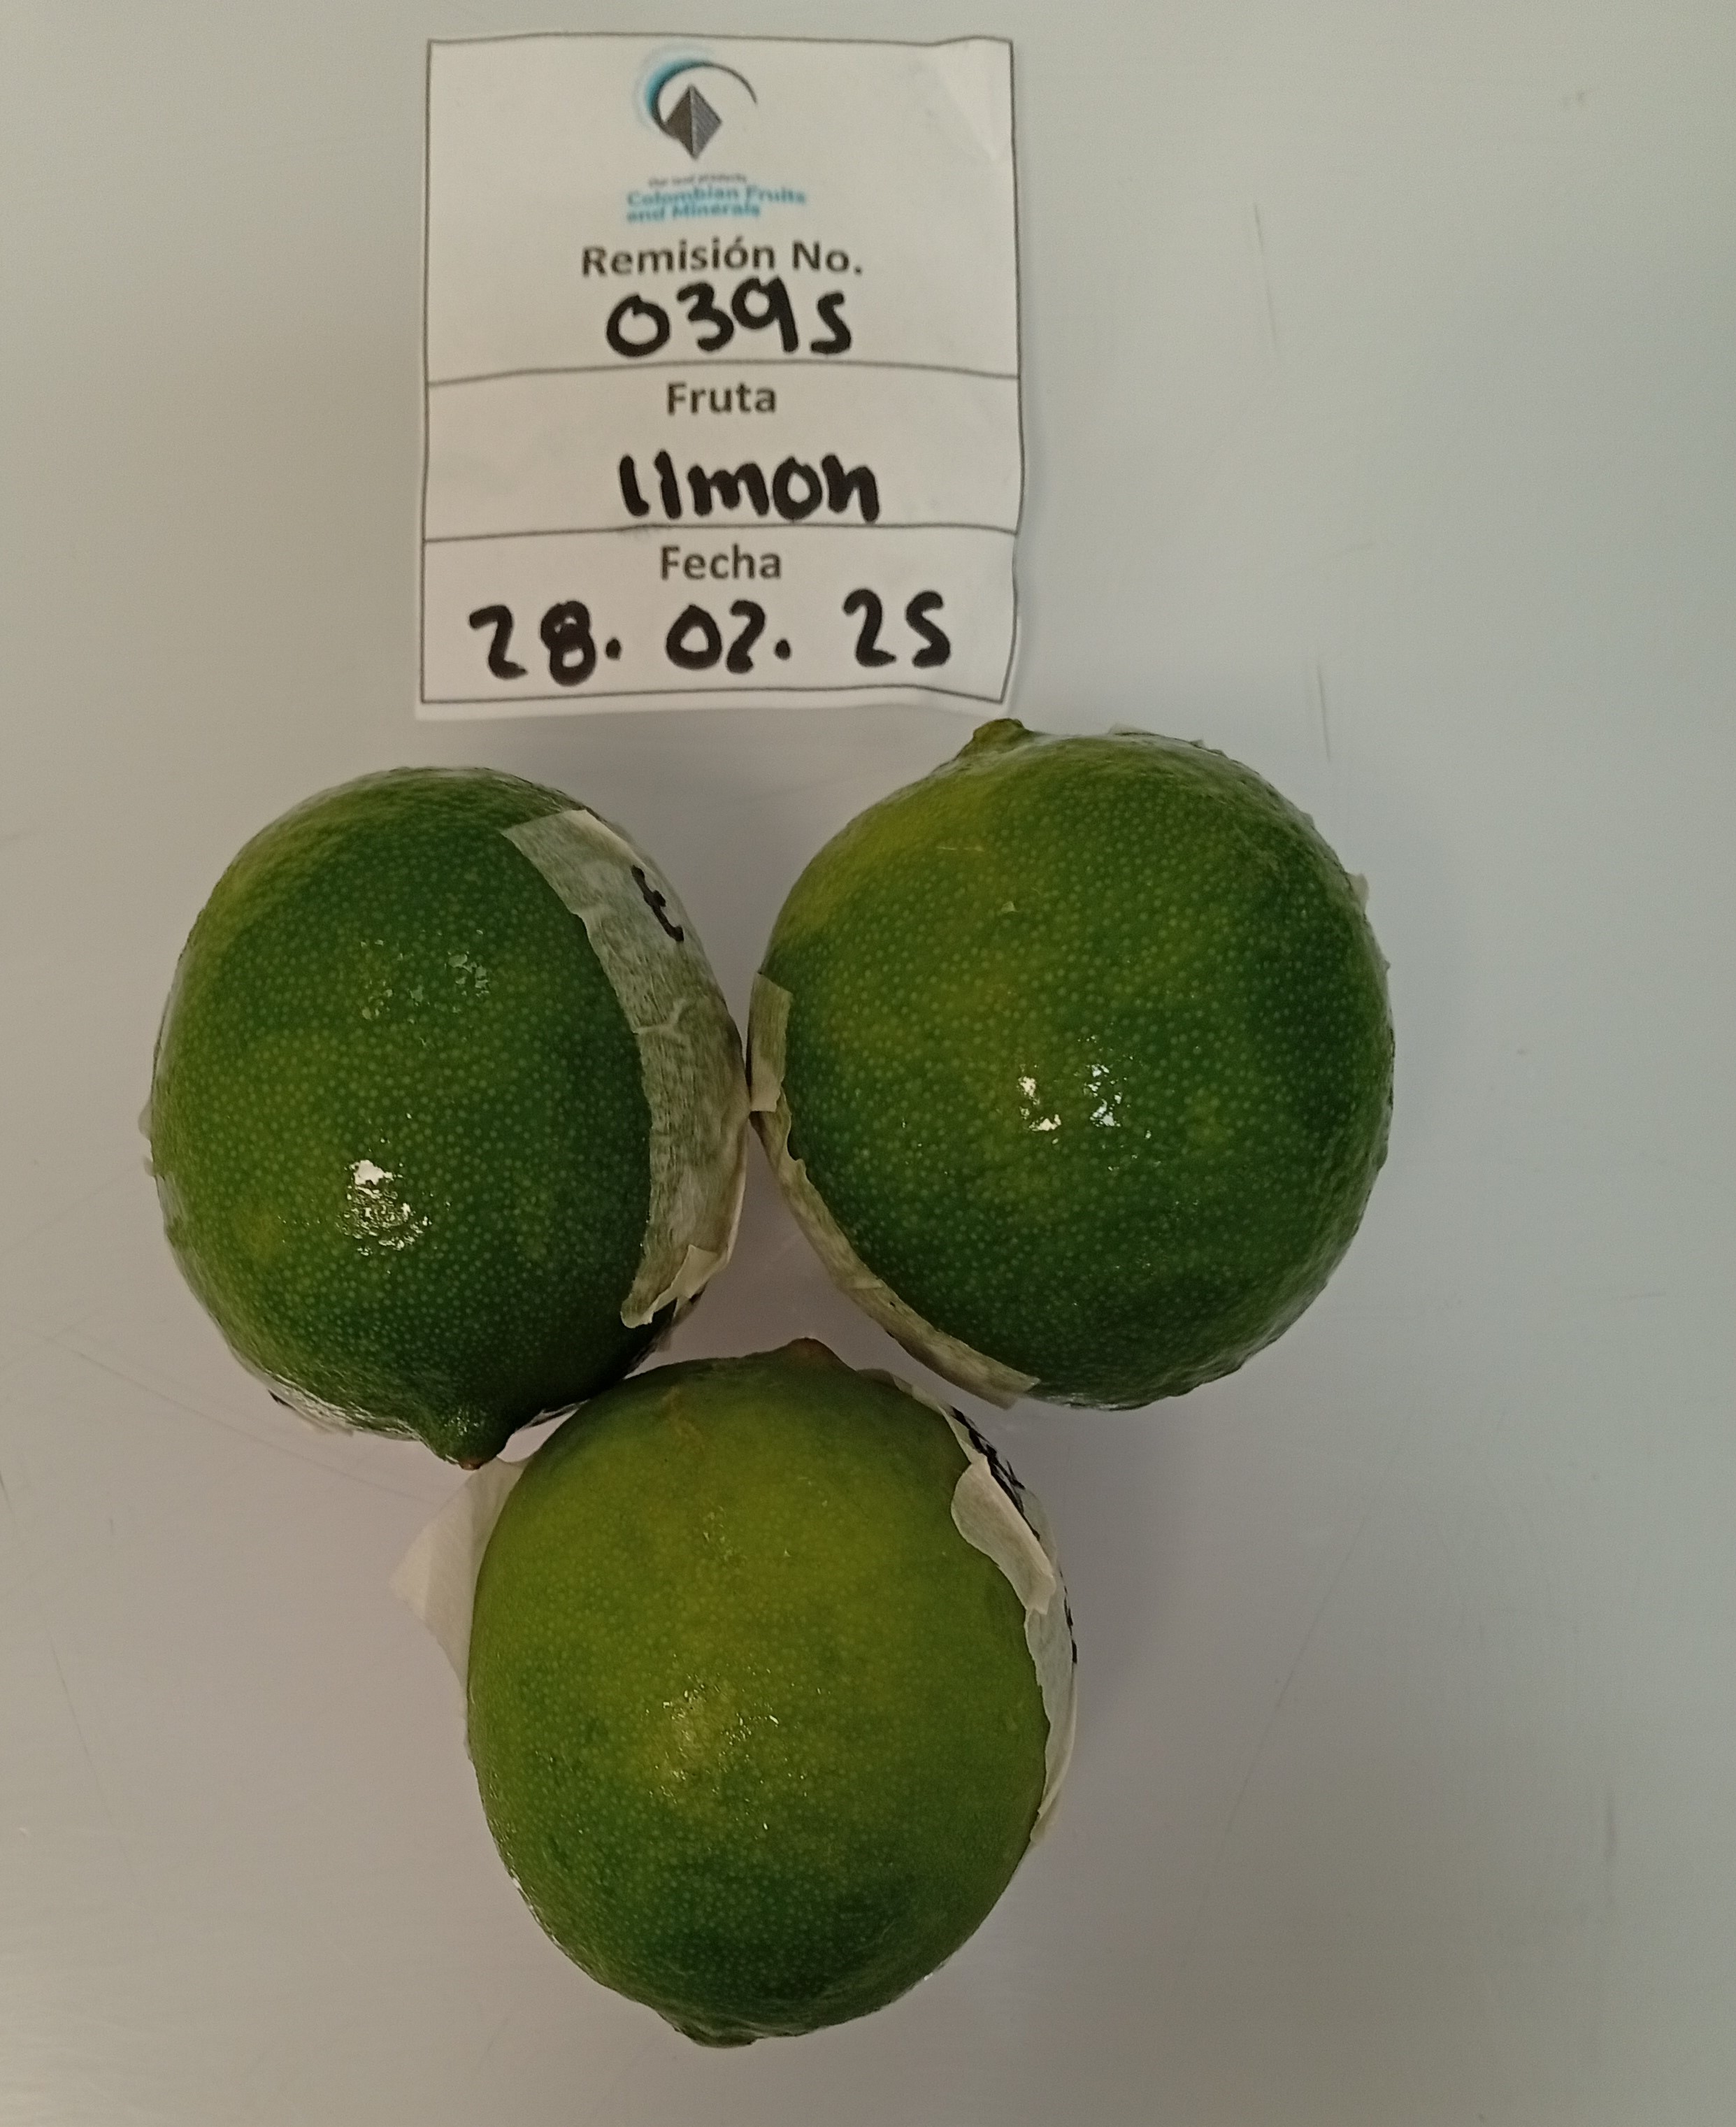 Colombian Fruits
and Minerals
Remisión No.
0395
Fruta
limon
Fecha
28. 02. 25